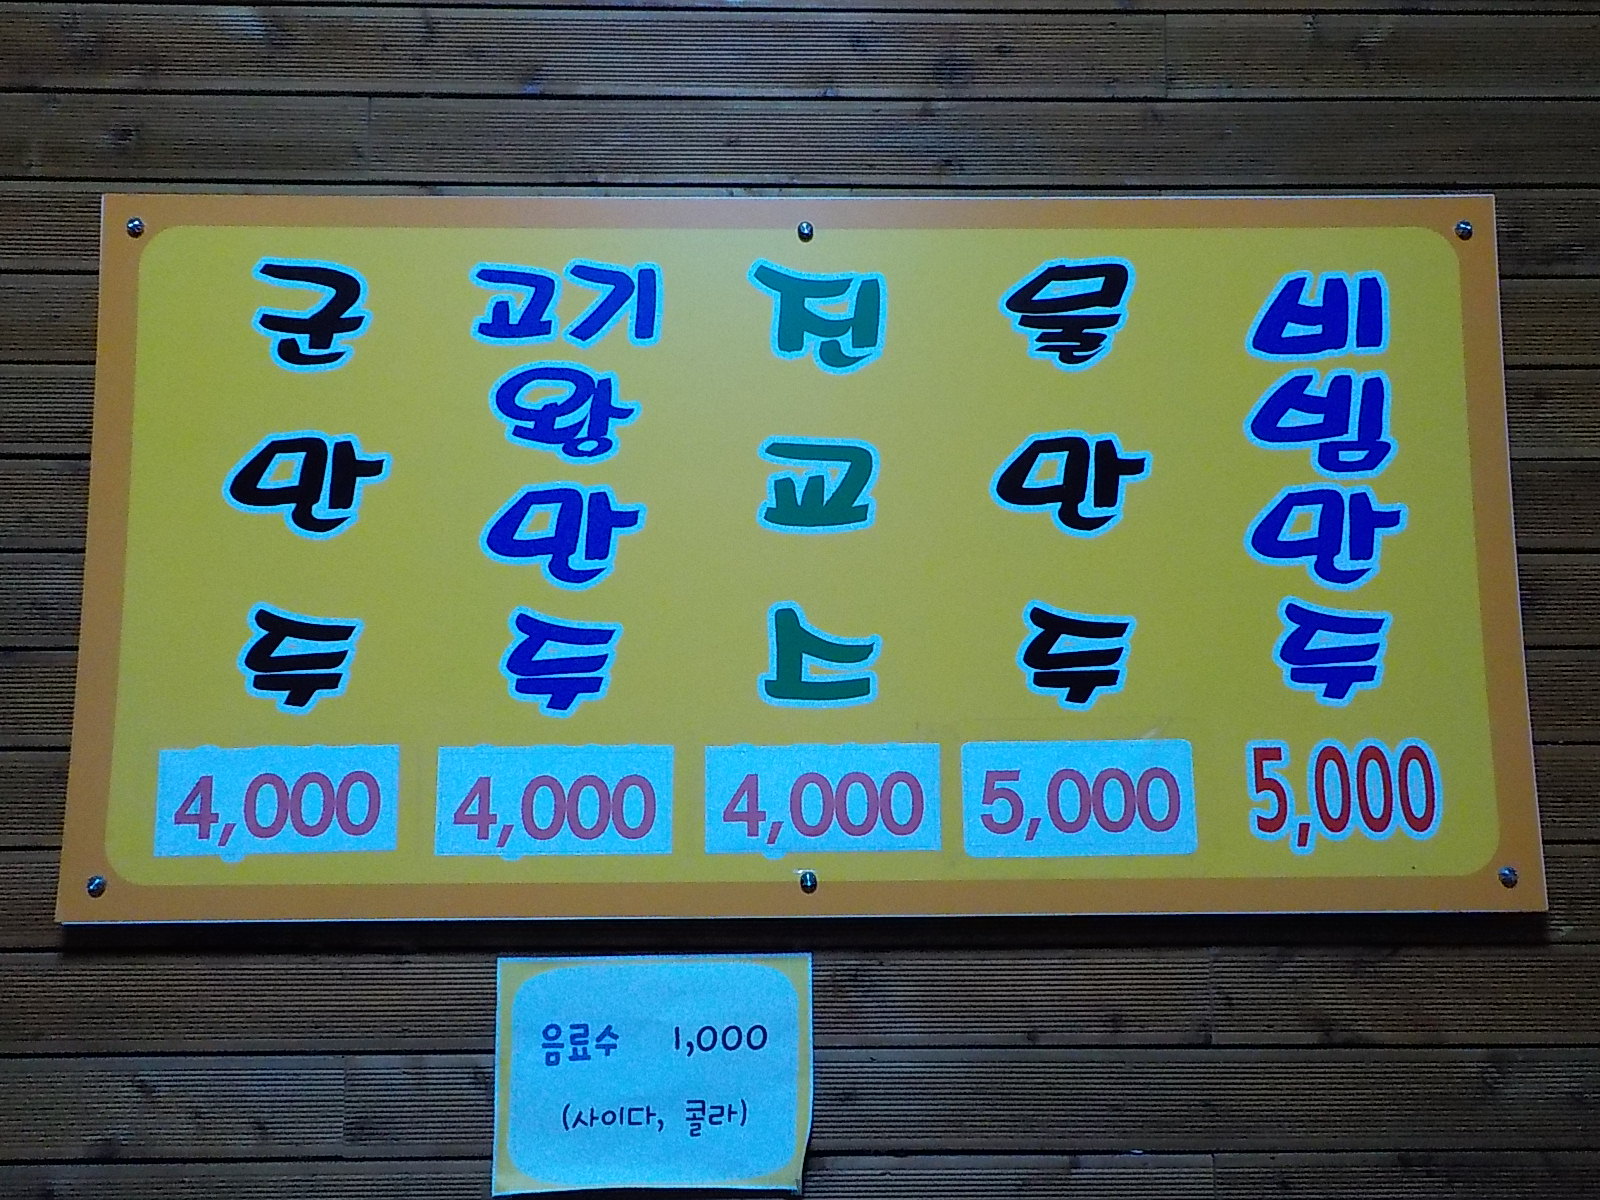 군만두
고기왕만두
물만두
비빔만두
4,000
4,000
4,000
5,000
5,000
음료수 1,000
(사이다, 콜라)